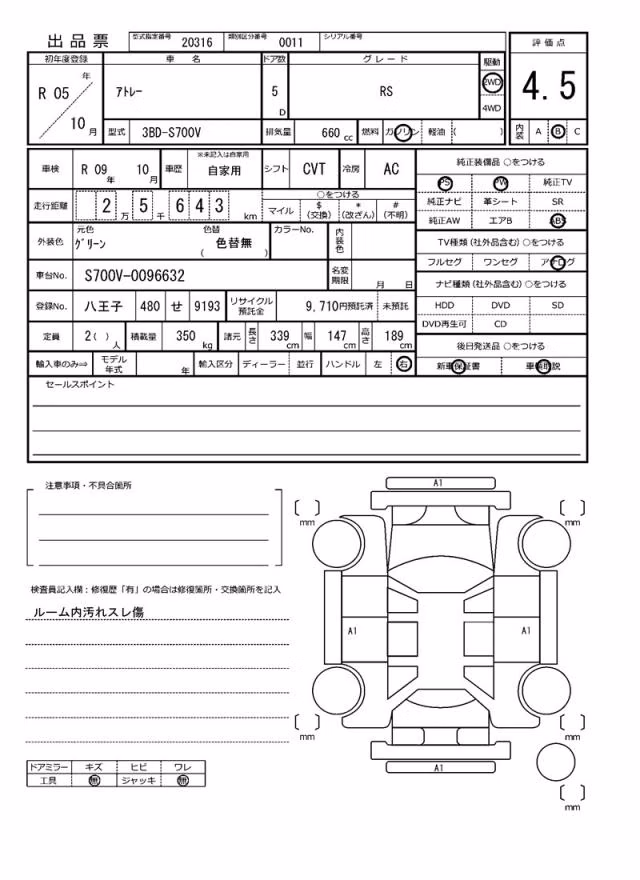 出品票
型式指定番号 20316 類別区分番号 0011 シリアル番号
初年度登録 車名 ドア数 グレード 駆動
R 05 年 10 月 ｱﾄﾚｰ 5 D RS 2WD 4WD
型式 3BD-S700V 排気量 660 cc 燃料 ガソリン 軽油 ( )
評価点
4.5
内装 A B C
車検 R 09 年 10 月 車歴 ※未記入は自家用 自家用 シフト CVT 冷房 AC
走行距離 2 万 5 千 6 4 3 km
○をつける
マイル $ (交換) * (改ざん) # (不明)
外装色 元色 ｸﾞﾘｰﾝ 色替 色替無 ( ) カラーNo. 内装色
車台No. S700V-0096632 名変期限 月 日
登録No. 八王子 480 せ 9193 リサイクル預託金 9,710円預託済 未預託
定員 2( ) 人 積載量 350 kg 諸元 長さ 339 cm 幅 147 cm 高さ 189 cm
輸入車のみ⇒ モデル年式 年 輸入区分 ディーラー 並行 ハンドル 左 右
純正装備品 ○をつける
PS PW 純正TV
純正ナビ 革シート SR
純正AW エアB ABS
TV種類(社外品含む) ○をつける
フルセグ ワンセグ アナログ
ナビ種類(社外品含む) ○をつける
HDD DVD SD
DVD再生可 CD
後日発送品 ○をつける
新車保証書 車輌取説
セールスポイント
注意事項・不具合箇所
検査員記入欄：修復歴「有」の場合は修復箇所・交換箇所を記入
ルーム内汚れスレ傷
ドアミラー キズ ヒビ ワレ
工具 無 ジャッキ 無
A1
mm mm
A1 A1
mm mm
A1
mm